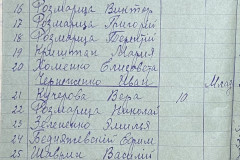 16 Розмарица Виктор
17 Розмарица Григорий
18 Розмарица Терентий
19 Криштап Мария
20 Хоменко Елисовета
Черненко Иван
21 Кучерова Вера 10 Млад
22 Розмарица Николай
23 Зелененко Эмилия
24 Беднятевский Ефрим
25 Шаврин Василий